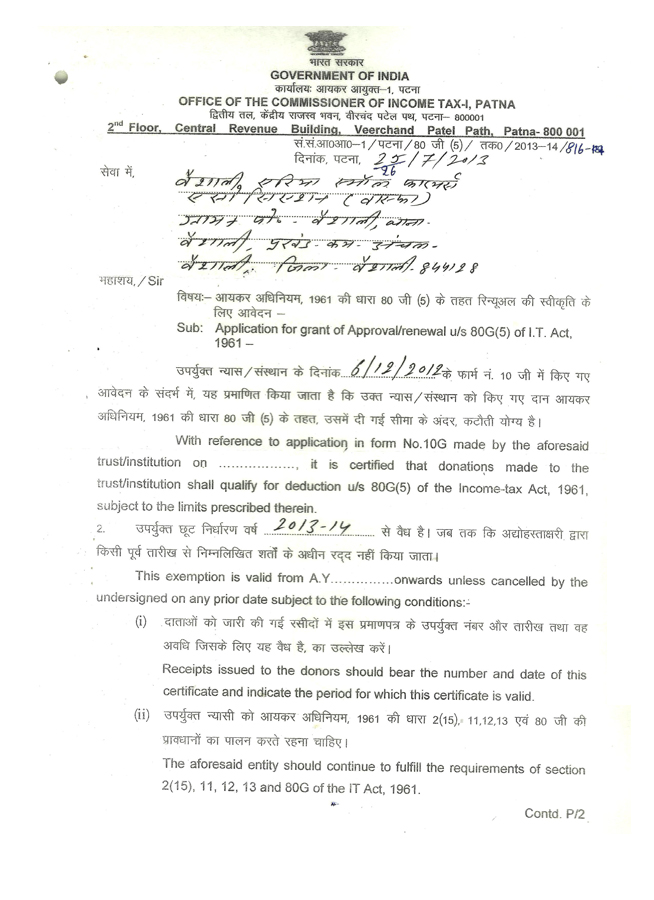 भारत सरकार
GOVERNMENT OF INDIA
कार्यालयः आयकर आयुक्त–1, पटना
OFFICE OF THE COMMISSIONER OF INCOME TAX-I, PATNA
द्वितीय तल, केंद्रीय राजस्व भवन, वीरचंद पटेल पथ, पटना– 800001
2nd Floor, Central Revenue Building, Veerchand Patel Path, Patna- 800 001
सं.सं.आ0आ0–1/पटना/80 जी (5)/ तक0/2013–14/816-
दिनांक, पटना, 25/7/2013
26
सेवा में,
वैशाली एरिया स्मॉल फार्मर्स
एसोसिएशन (वास्फा)
ग्राम पो०- वैशाली, थाना-
वैशाली, प्रखंड-कम-अंचल-
वैशाली, जिला- वैशाली-844128
महाशय,/Sir
विषयः– आयकर अधिनियम, 1961 की धारा 80 जी (5) के तहत रिन्यूअल की स्वीकृति के
लिए आवेदन –
Sub: Application for grant of Approval/renewal u/s 80G(5) of I.T. Act,
1961 –
उपर्युक्त न्यास/संस्थान के दिनांक 6/12/2012 के फार्म नं. 10 जी में किए गए
आवेदन के संदर्भ में, यह प्रमाणित किया जाता है कि उक्त न्यास/संस्थान को किए गए दान आयकर
अधिनियम, 1961 की धारा 80 जी (5) के तहत, उसमें दी गई सीमा के अंदर, कटौती योग्य है।
With reference to application in form No.10G made by the aforesaid
trust/institution on .................., it is certified that donations made to the
trust/institution shall qualify for deduction u/s 80G(5) of the Income-tax Act, 1961,
subject to the limits prescribed therein.
2. उपर्युक्त छूट निर्धारण वर्ष 2013-14 से वैध है। जब तक कि अद्योहस्ताक्षरी द्वारा
किसी पूर्व तारीख से निम्नलिखित शर्तों के अधीन रद्द नहीं किया जाता।
This exemption is valid from A.Y..............onwards unless cancelled by the
undersigned on any prior date subject to the following conditions:-
(i) दाताओं को जारी की गई रसीदों में इस प्रमाणपत्र के उपर्युक्त नंबर और तारीख तथा वह
अवधि जिसके लिए यह वैध है, का उल्लेख करें।
Receipts issued to the donors should bear the number and date of this
certificate and indicate the period for which this certificate is valid.
(ii) उपर्युक्त न्यासी को आयकर अधिनियम, 1961 की धारा 2(15), 11,12,13 एवं 80 जी की
प्रावधानों का पालन करते रहना चाहिए।
The aforesaid entity should continue to fulfill the requirements of section
2(15), 11, 12, 13 and 80G of the IT Act, 1961.
Contd. P/2